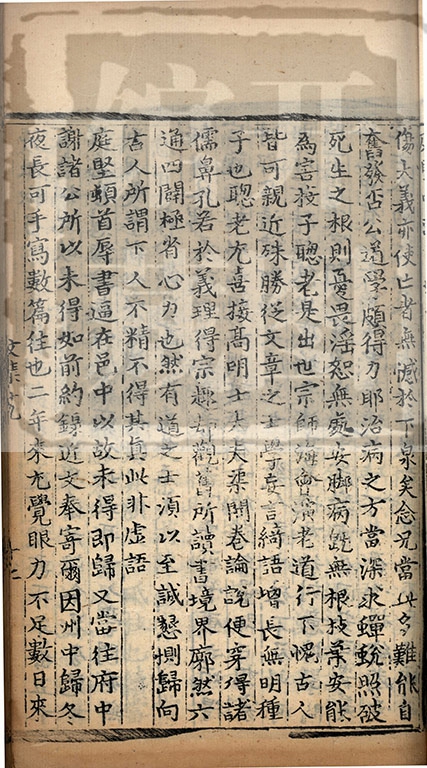 傷大義亦使亡者無憾於下泉矣念兄當此多難能自
奮發否公道學頗得力耶治病之方當深求蟬蛻照破
死生之根則憂畏淫怒無處安脚病既無根枝葉安能
為害投子聰老是出世宗師海會演老道行不愧古人
皆可親近殊勝從文章之士學妄言綺語增長無明種
子也聰老尤喜接髙明士大夫渠開卷論說便穿得諸
儒鼻孔若於義理得宗趣却觀舊所讀書境界廓然六
通四闢極省心力也然有道之士須以至誠懇惻歸向
古人所謂下人不精不得其真此非虛語
庭堅頓首辱書逼在邑中以故未得即歸又當往府中
謝諸公所以未得如前約錄近文奉寄爾因州中歸冬
夜長可手寫數篇往也二年來尤覺眼力不足數日來
文集十九
十二